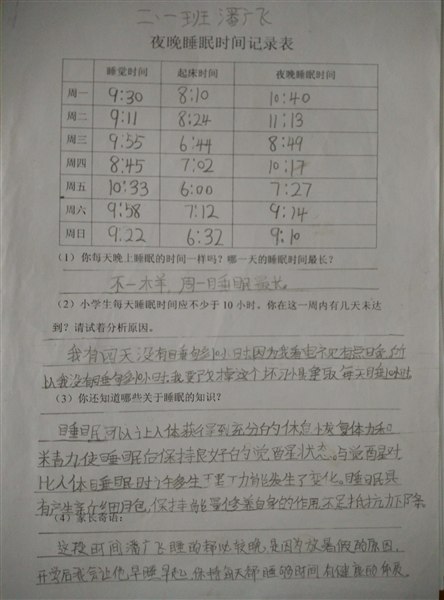 二、一班 潘广飞
夜晚睡眠时间记录表
睡觉时间 起床时间 夜晚睡眠时间
周一 9:30 8:10 10:40
周二 9:11 8:24 11:13
周三 9:55 6:44 8:49
周四 8:45 7:02 10:17
周五 10:33 6:00 7:27
周六 9:58 7:12 9:14
周日 9:22 6:32 9:10
(1) 你每天晚上睡眠的时间一样吗?哪一天的睡眠时间最长?
不一样,周一睡眠最长。
(2) 小学生每天睡眠时间应不少于10小时。你在这一周内有几天未达
到?请试着分析原因。
我有四天没有睡够10小时因为我看电视有点晚,所
以我没有睡够10小时,我要改掉这个坏习惯争取每天睡10小时
(3) 你还知道哪些关于睡眠的知识?
睡眠可以让人体获得到充分的休息恢复体力和
精力,使睡眠后保持良好的觉醒状态。与觉醒对
比人体睡眠时许多生理功能发生了变化。睡眠具
有产生新细胞,保持能量修养自身的作用不足抵抗力下降
(4) 家长寄语:
这段时间潘广飞睡的都比较晚,是因为放暑假的原因,
开学后我会让他早睡早起,保持每天都睡够时间有健康的体质。